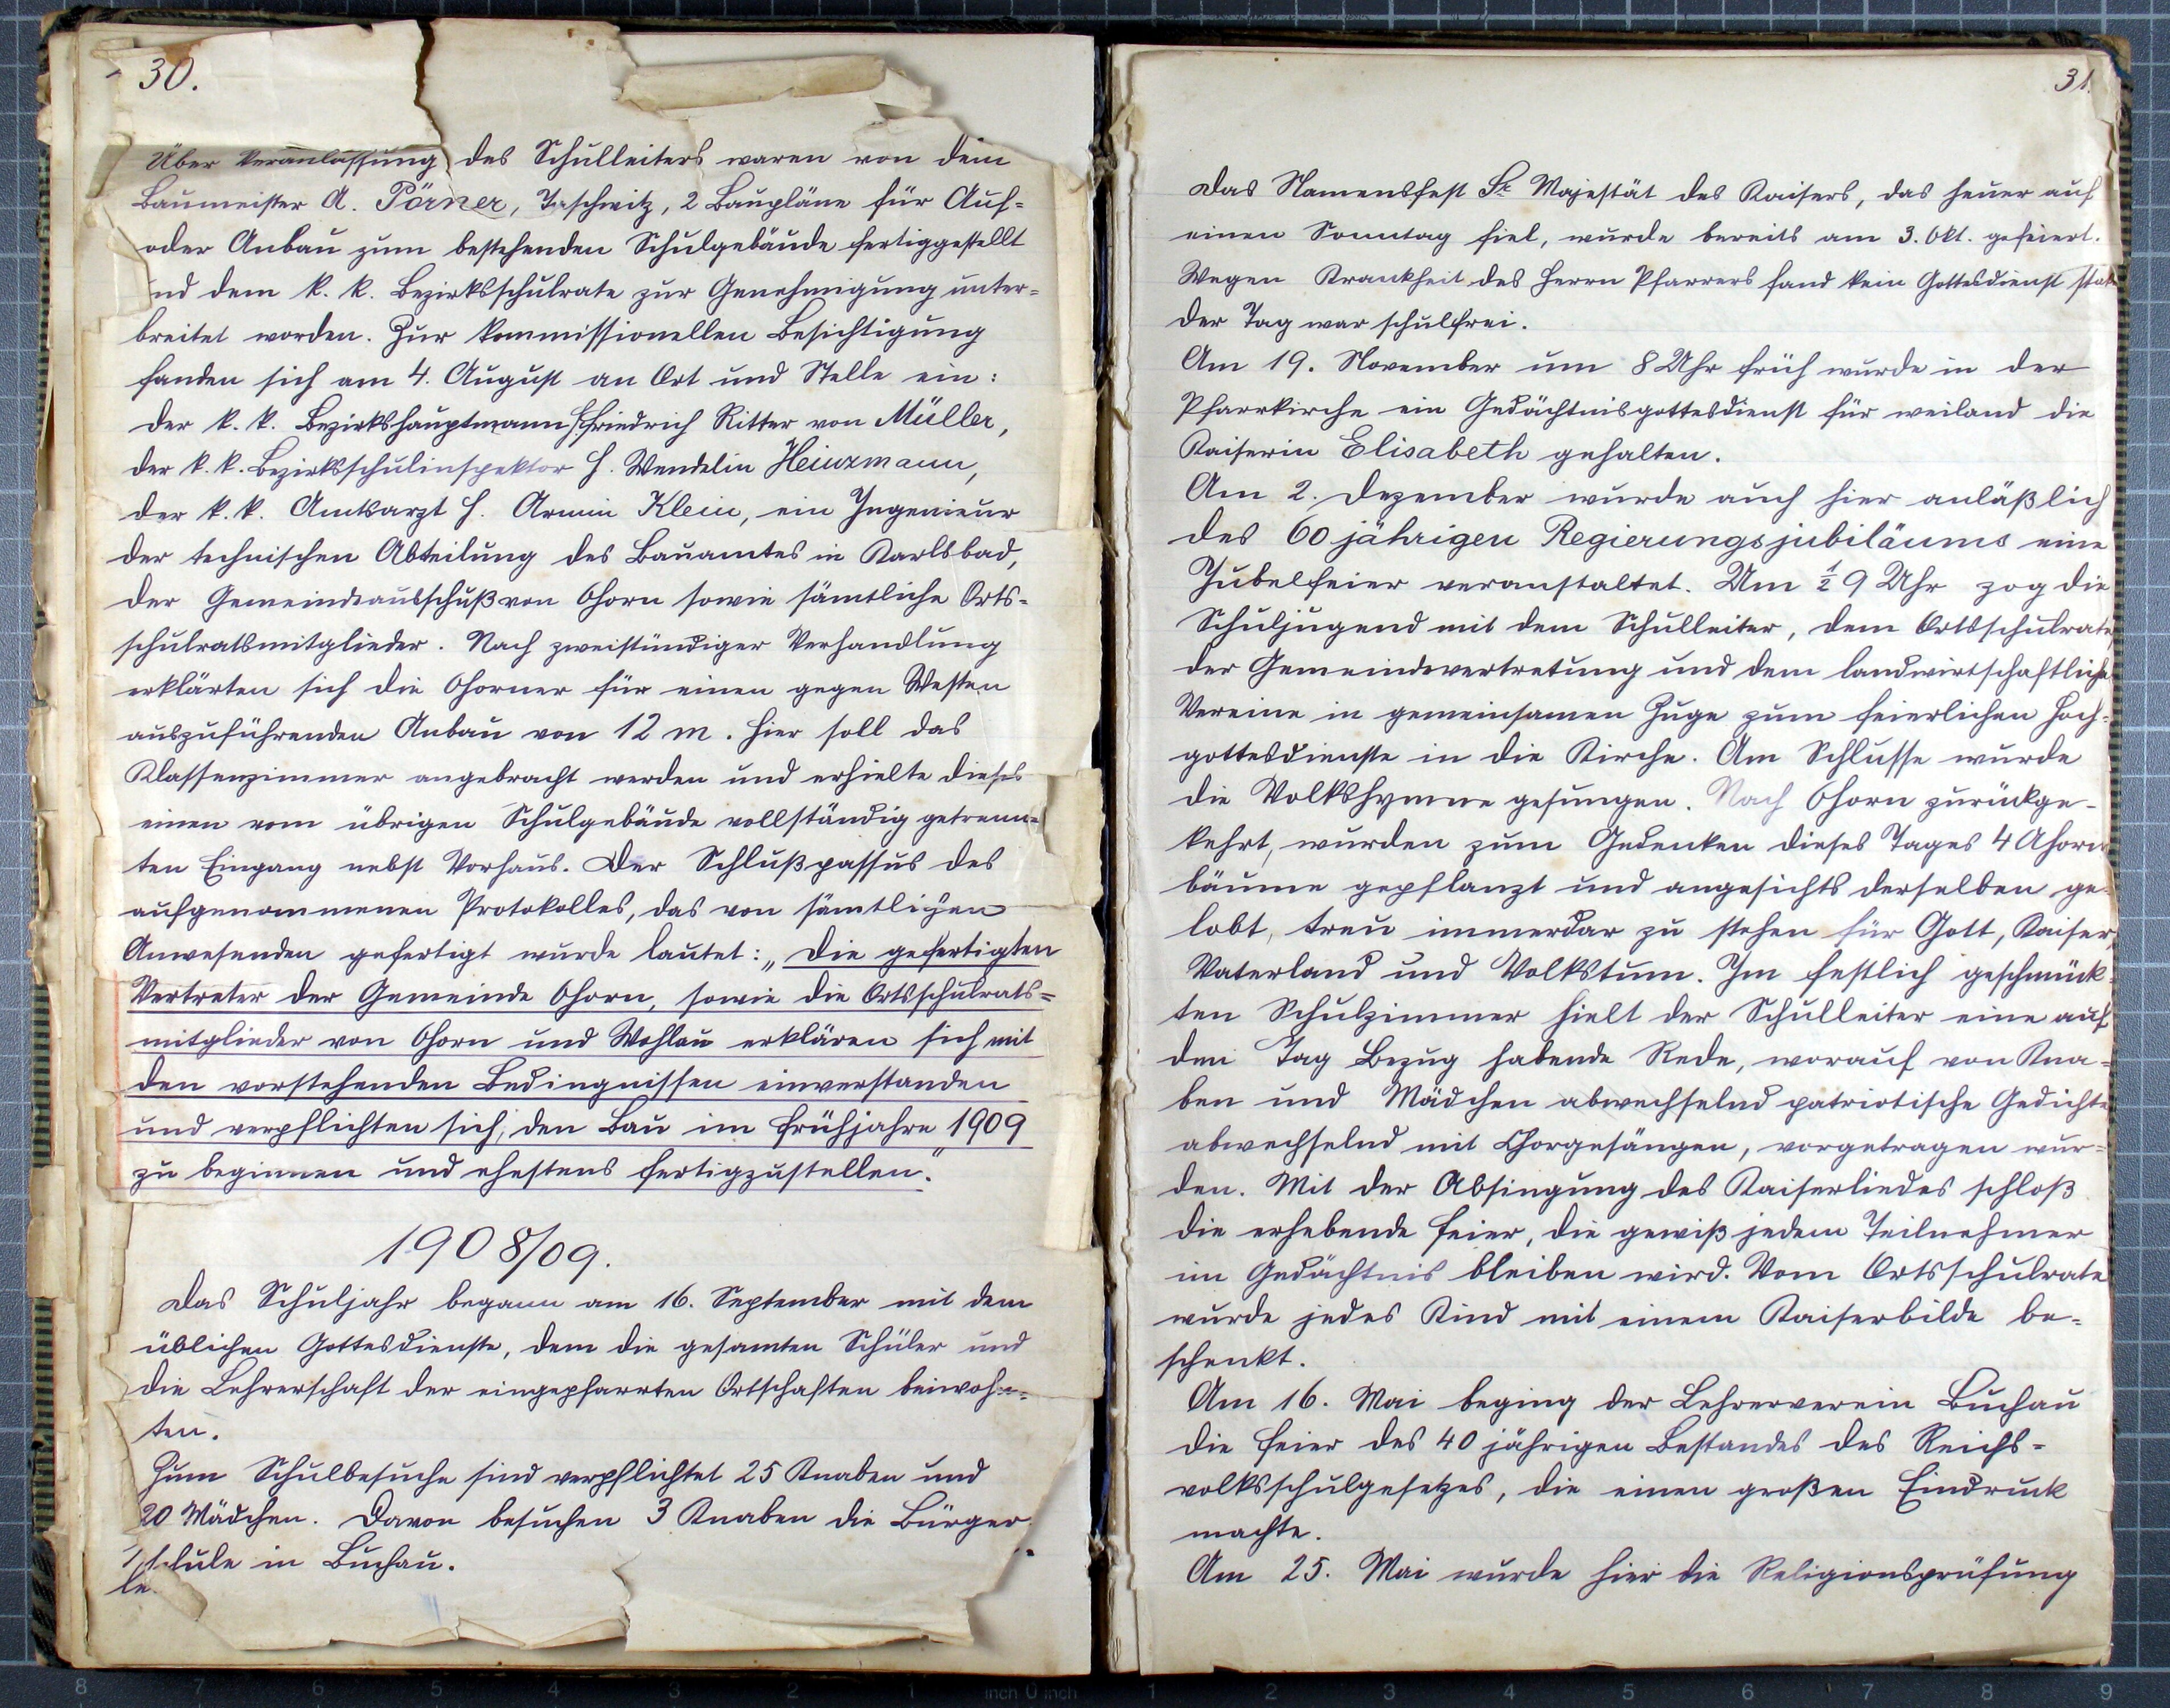 30.
Über Veranlassung des Schulleiters waren von dem
Baumeister A. Pörner, Taschwitz, 2 Baupläne für Auf-
oder Anbau zum bestehenden Schulgebäude fertiggestellt
nd dem k. k. Bezirksschulrate zur Genehmigung unter-
breitet worden. Zur kommissionellen Besichtigung
fanden sich am 4. August an Ort und Stelle ein:
der k. k. Bezirkshauptmann H. Friedrich Ritter von Müller,
der k. k. Bezirksschulinspektor H. Wendelin Heinzmann,
der k. k. Amtsarzt H. Armin Klein, ein Ingenieur
der technischen Abteilung des Bauamtes in Karlsbad,
der Gemeindeausschuß von Ohorn sowie sämtliche Orts-
schulratsmitglieder. Nach zweistündiger Verhandlung
erklärten sich die Ohorner für einen gegen Westen
auszuführenden Anbau von 12 m. Hier soll das
Klassenzimmer angebracht werden und erhielte dieses
einen vom übrigen Schulgebäude vollständig getrenn-
ten Eingang nebst Vorhaus. Der Schlußpassus des
aufgenommenen Protokolles, das von sämtlichen
Anwesenden gefertigt wurde lautet: „Die gefertigten
Vertreter der Gemeinde Ohorn, sowie die Ortsschulrats-
mitglieder von Ohorn und Wohlau erklären sich mit
den vorstehenden Bedingnissen einverstanden
und verpflichten sich, den Bau im Frühjahre 1909
zu beginnen und ehestens fertigzustellen."
1908/09.
Das Schuljahr begann am 16. September mit dem
üblichen Gottesdienste, dem die gesamten Schüler und
die Lehrerschaft der eingepfarrten Ortschaften beiwohn-
ten.
Zum Schulbesuche sind verpflichtet 25 Knaben und
20 Mädchen. Davon besuchen 3 Knaben die Bürger
schule in Buchau.
31.
Das Namensfest Sr. Majestät des Kaisers, das heuer auf
einen Sonntag fiel, wurde bereits am 3. Okt. gefeiert.
Wegen Krankheit des Herrn Pfarrers fand kein Gottesdienst statt
der Tag war schulfrei.
Am 19. November um 8 Uhr früh wurde in der
Pfarrkirche ein Gedächtnisgottesdienst für weiland die
Kaiserin Elisabeth gehalten.
Am 2. Dezember wurde auch hier anläßlich
des 60 jährigen Regierungsjubiläums eine
Jubelfeier veranstaltet. Um ½ 9 Uhr zog die
Schuljugend mit dem Schulleiter, dem Ortsschulrate,
der Gemeindevertretung und dem landwirtschaftliche
Vereine in gemeinsamen Zuge zum feierlichen Hoch-
gottesdienste in die Kirche. Am Schlusse wurde
die Volkshymne gesungen. Nach Ohorn zurückge-
kehrt, wurden zum Gedenken dieses Tages 4 Ahorn
bäume gepflanzt und angesichts derselben ge-
lobt, treu immerdar zu stehen für Gott, Kaiser,
Vaterland und Volkstum. Im festlich geschmück-
ten Schulzimmer hielt der Schulleiter eine auf
den Tag Bezug habende Rede, worauf von Kna-
ben und Mädchen abwechselnd patriotische Gedichte
abwechselnd mit Chorgesängen, vorgetragen wur-
den. Mit der Absingung des Kaiserliedes schloß
die erhebende Feier, die gewiß jedem Teilnehmer
im Gedächtnis bleiben wird. Vom Ortsschulrate
wurde jedes Kind mit einem Kaiserbilde be-
schenkt.
Am 16. Mai beging der Lehrerverein Buchau
die Feier des 40 jährigen Bestandes des Reichs-
volksschulgesetzes, die einen großen Eindruck
machte.
Am 25. Mai wurde hier die Religionsprüfung
8 7 6 5 4 3 2 1 inch 0 inch 1 2 3 4 5 6 7 8 9